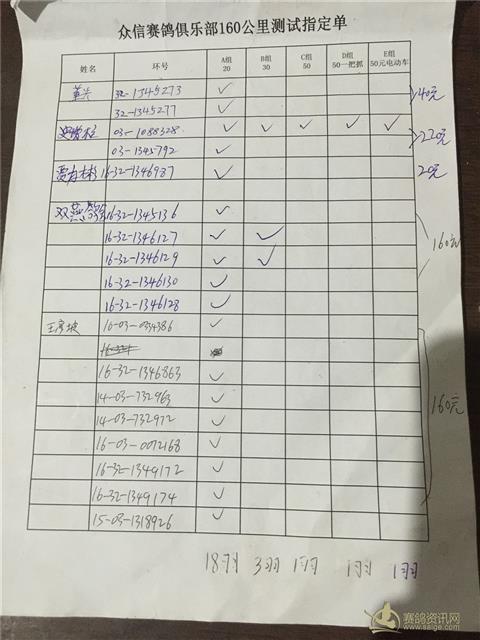 众信赛鸽俱乐部160公里测试指定单
姓名 环号 A组 20 B组 30 C组 50 D组 50一把抓 E组 50元电动车
32-1345273 ✓
32-1345277 ✓
40元
03-1088328 ✓ ✓ ✓ ✓ ✓
03-1345792 ✓
220元
16-32-1346987 ✓ 20元
双燕鸽舍 16-32-1345136 ✓
16-32-1346127 ✓ ✓
16-32-1346129 ✓ ✓
160元
16-32-1346130 ✓
16-32-1346128 ✓
16-03-0034386 ✓
16-32-1346863 ✓
14-03-732963 ✓
14-03-732972 ✓
160元
16-03-0072168 ✓
16-32-1349172 ✓
16-32-1349174 ✓
15-03-1318926 ✓
18羽 3羽 1羽 1羽 1羽
赛鸽资讯网
www.saige.com